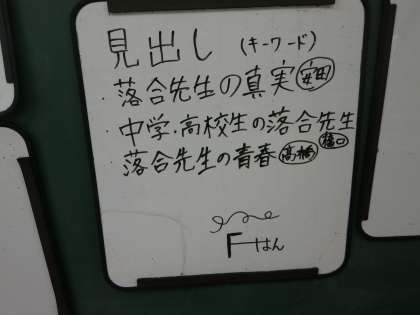 見出し (キーワード)
・落合先生の真実 安田
・中学・高校生の落合先生
樋口
・落合先生の青春 高橋
Fはん